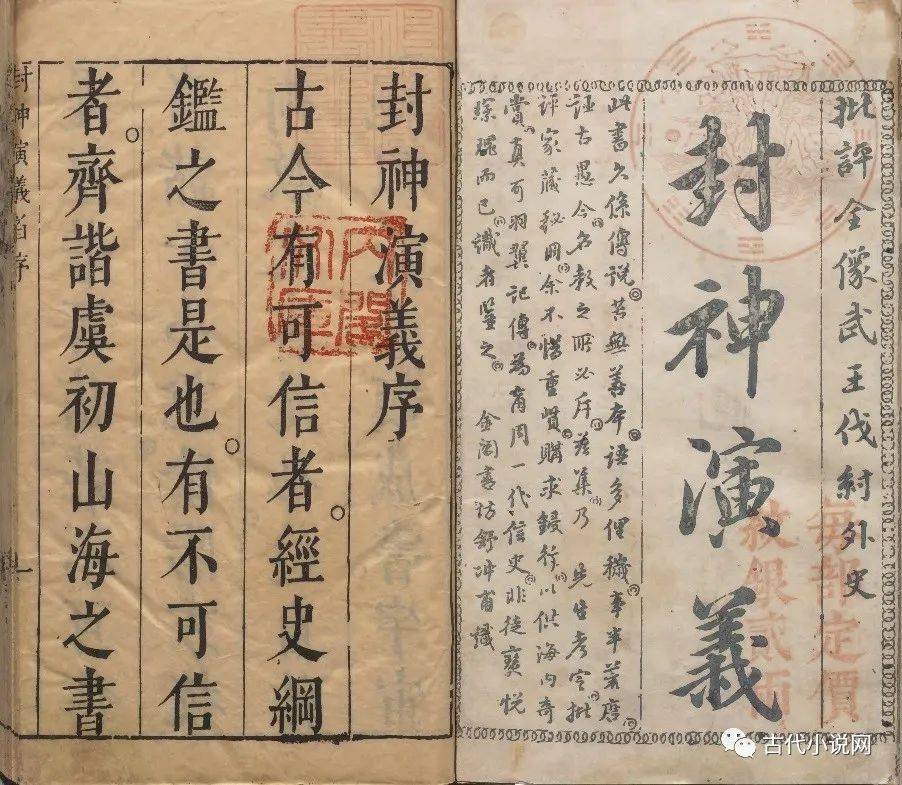 批評全像武王伐紂外史
封神演義
此書久係傳說苦無善本語多俚穢事半荒唐
誣古愚今名教之所必斥茲集乃 先生考定批
評家藏秘冊余不惜重貲購求鋟行以供海內奇
賞真可羽翼記傳為商周一代信史非徒寶悅
琛瑰而已識者鑒之 金閶書坊舒冲甫識
每部定價
紋銀貳兩
封神演義序
古今有可信者。經史綱
鑑之書是也。有不可信
者。齊諧虞初山海之書
封神演義 序 一
內閣
文庫
古代小说网